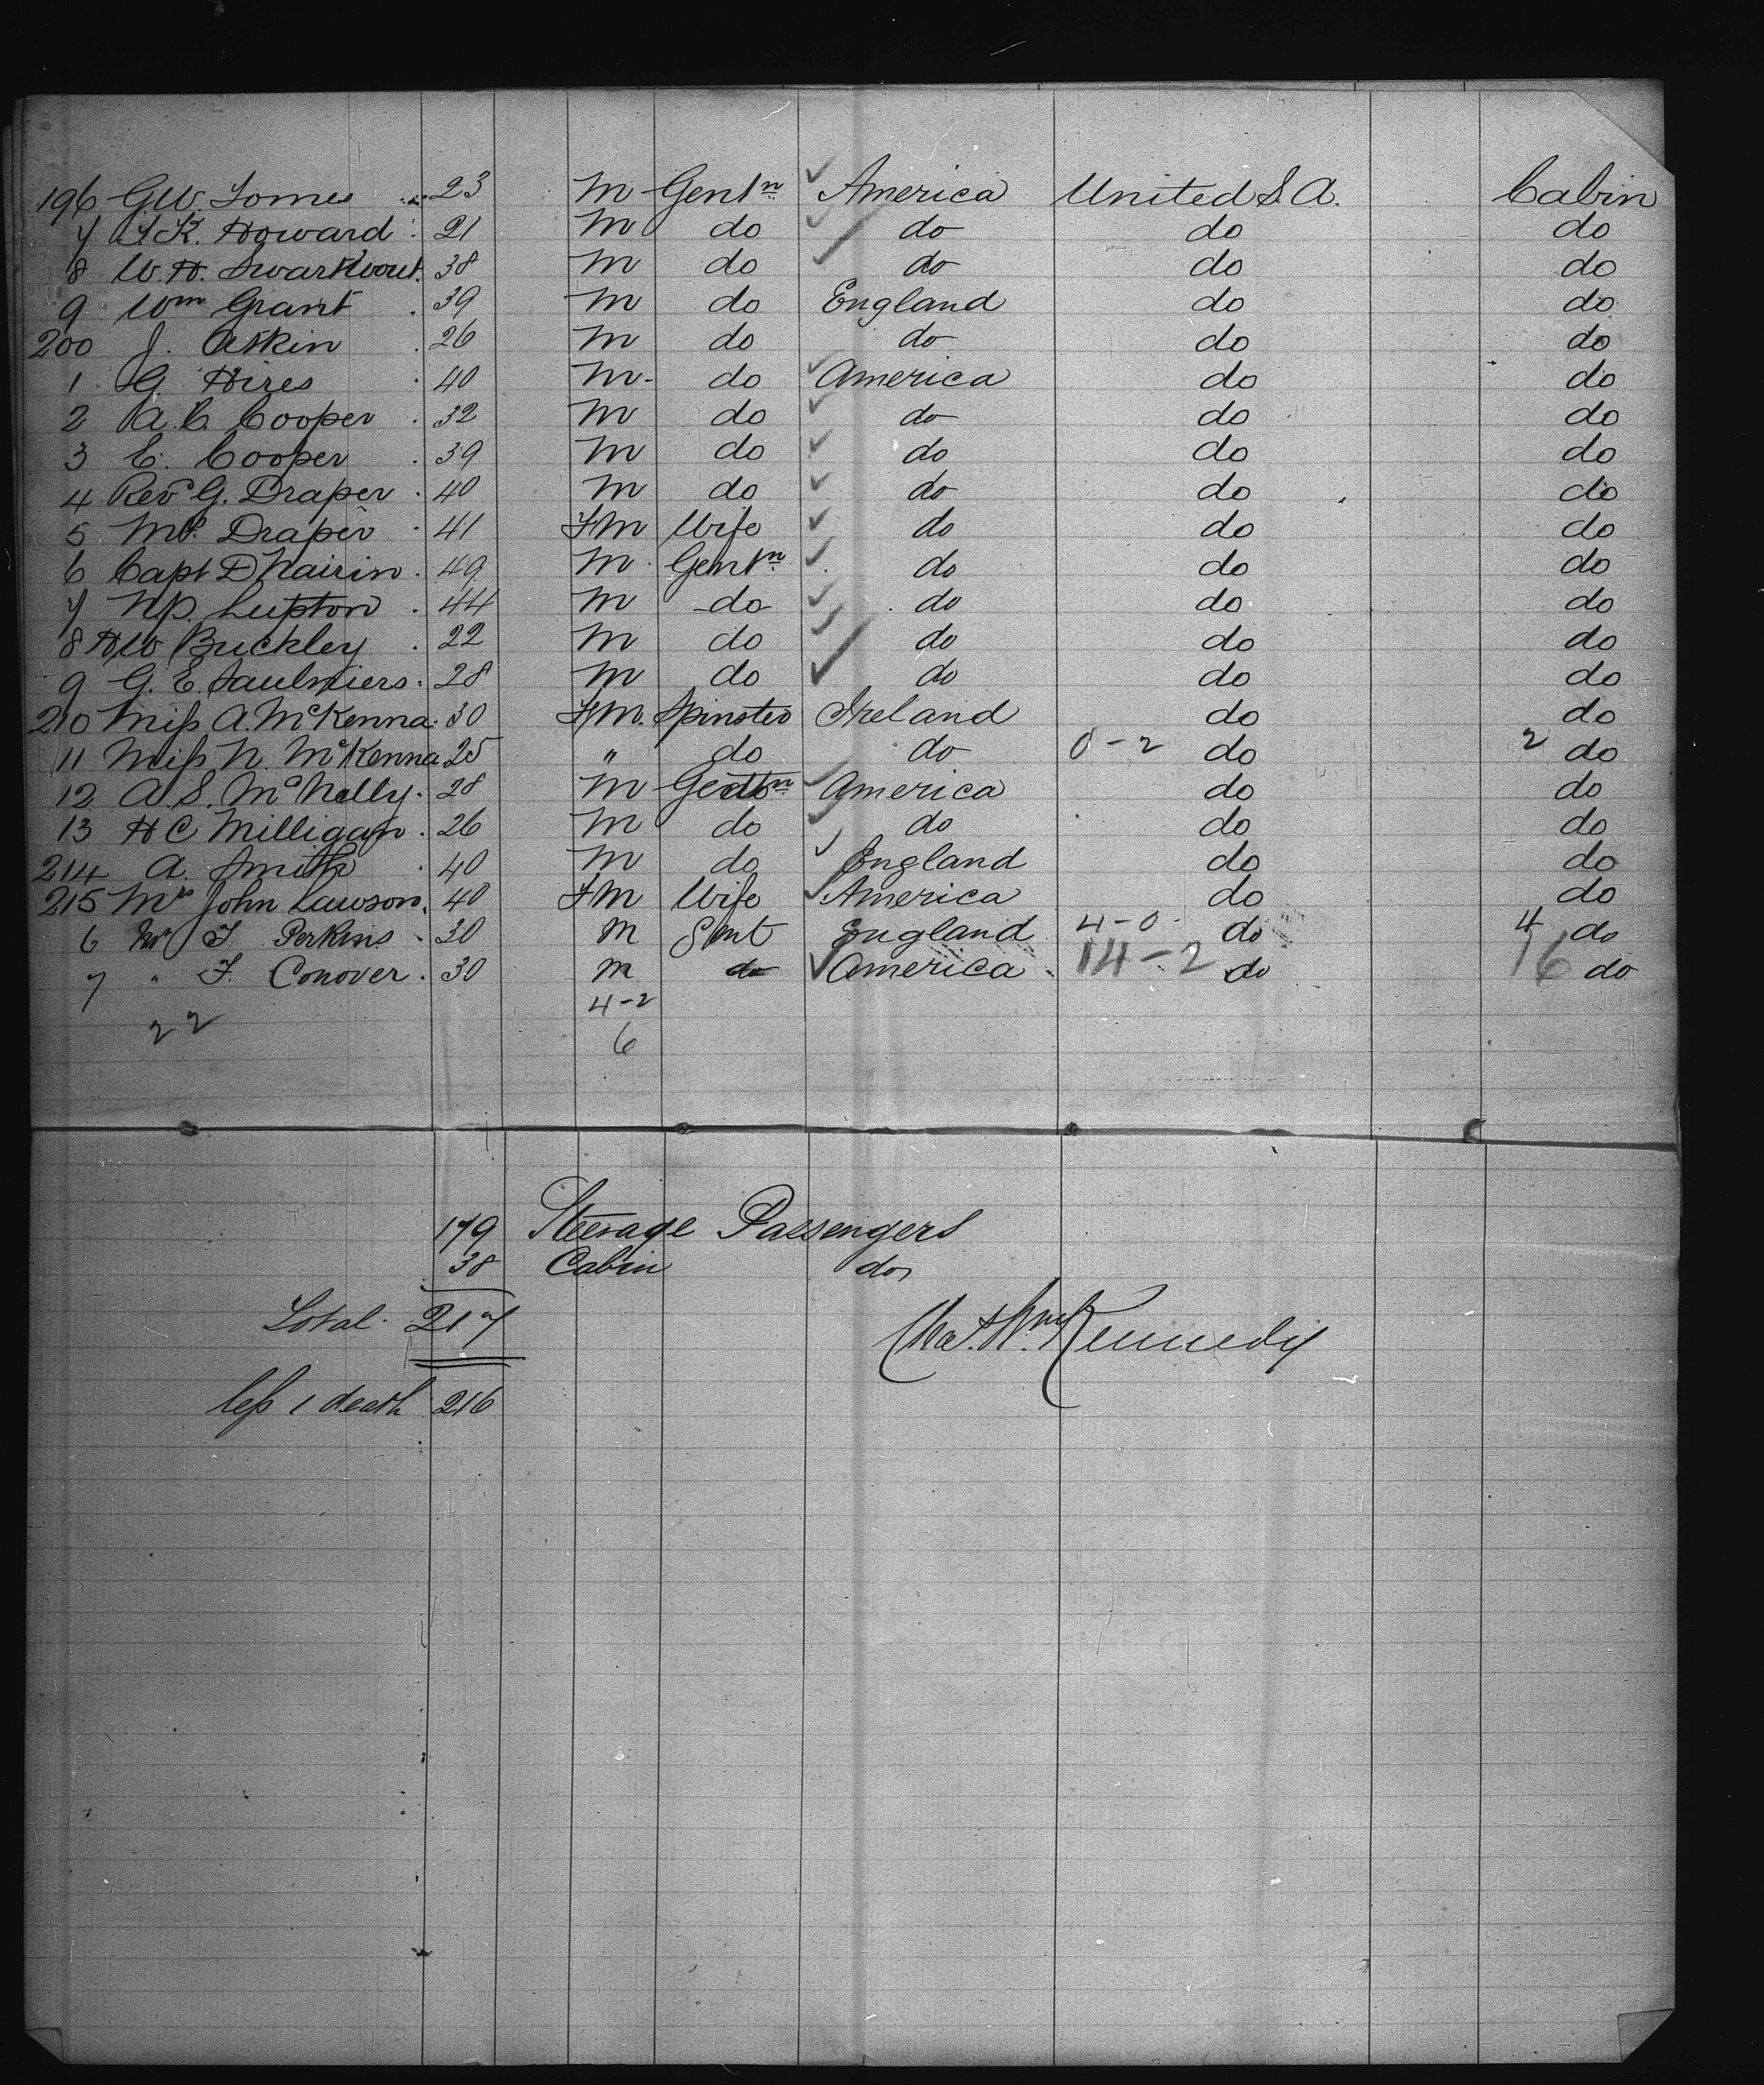 196 G.W. Tomes 23 M Gentn America United S.A. Cabin
7 T.K. Howard 21 M do do do do
8 W.H. Swarthout 38 M do do do do
9 Wm Grant 39 M do England do do
200 J. Askin 26 M do do do do
1 G Hires 40 M do America do do
2 A.C. Cooper 32 M do do do do
3 E. Cooper 39 M do do do do
4 Revd G. Draper 40 M do do do do
5 Mrs Draper 41 FM Wife do do do
6 Capt D Nairin 49 M Gentn do do do
7 N.P. Lupton 44 M do do do do
8 HW Buckley 22 M do do do do
9 G.E. Saulniers 28 M do do do do
210 Miss A. McKenna 30 FM Spinster Ireland do do
11 Miss N. McKenna 25 " do do 0-2 do 2 do
12 A.S. McNally 28 M Gentn America do do
13 H C Milligan 26 M do do do do
214 A. Smith 40 M do England do do
215 Mrs John Lawson 40 FM Wife America do do
6 Mr J. Perkins 30 M Gent England 4-0 do 4 do
7 " F. Conover 30 M do America 14-2 do 16 do
4-2
22
6
179 Steerage Passengers
38 Cabin do
Total 217
Kennedy
less 1 death 216